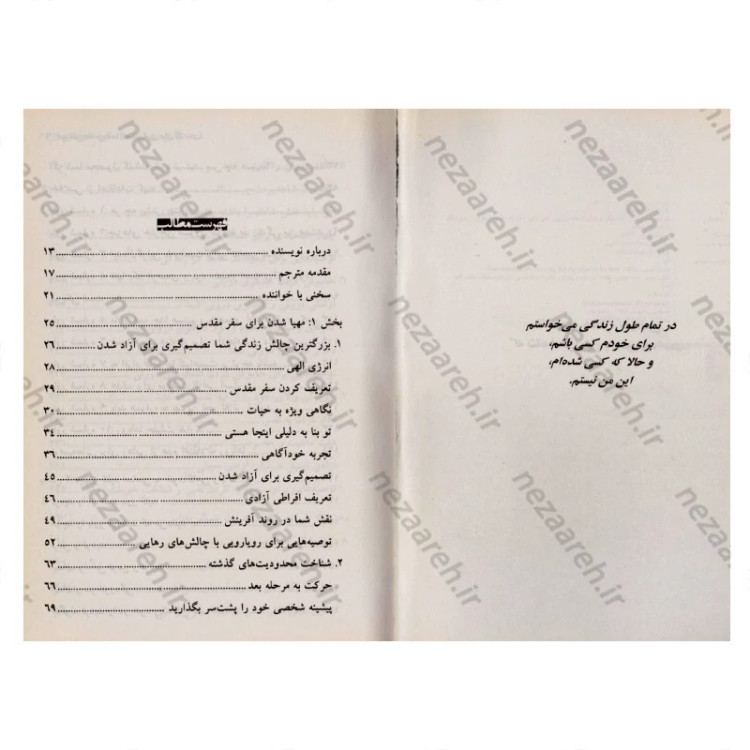 در تمام طول زندگی می‌خواستم
برای خودم کسی باشم،
و حالا که کسی شده‌ام،
این من نیستم.
فهرست مطالب
درباره نویسنده ۱۳
مقدمه مترجم ۱۷
سخنی با خواننده ۲۱
بخش ۱: مهیا شدن برای سفر مقدس ۲۵
۱. بزرگترین چالش زندگی شما تصمیم‌گیری برای آزاد شدن ۲۶
انرژی الهی ۲۸
تعریف کردن سفر مقدس ۲۹
نگاهی ویژه به حیات ۳۰
تو بنا به دلیلی اینجا هستی ۳۴
تجربه خودآگاهی ۳۶
تصمیم‌گیری برای آزاد شدن ۴۵
تعریف افراطی آزادی ۴۶
نقش شما در روند آفرینش ۴۹
توصیه‌هایی برای رویارویی با چالش‌های رهایی ۵۲
۲. شناخت محدودیت‌های گذشته ۶۳
حرکت به مرحله بعد ۶۶
پیشینه شخصی خود را پشت‌سر بگذارید ۶۹
nezaareh.ir
nezaareh.ir
nezaareh.ir
nezaareh.ir
nezaareh.ir
nezaareh.ir
nezaareh.ir
nezaareh.ir